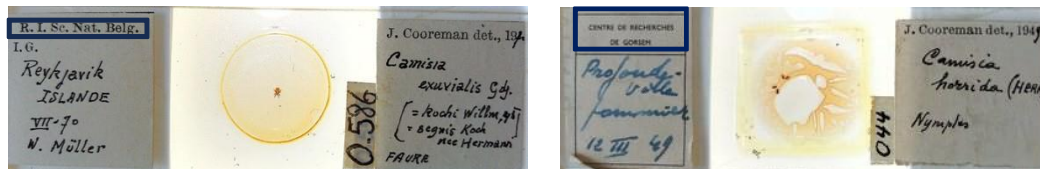 R. I. Sc. Nat. Belg.
I. G.
Reykjavik
ISLANDE
VII-70
W. Müller
0-586
J. Cooreman det., 19
Camisia
exuvialis Grdj.
= Kochi Willm,
= segnis Koch
nec Hermann
FAURE
CENTRE DE RECHERCHES
DE GORSEM
Profonde-
ville
12 III 49
044
J. Cooreman det., 1949
Camisia
horrida (HERM
Nymphes